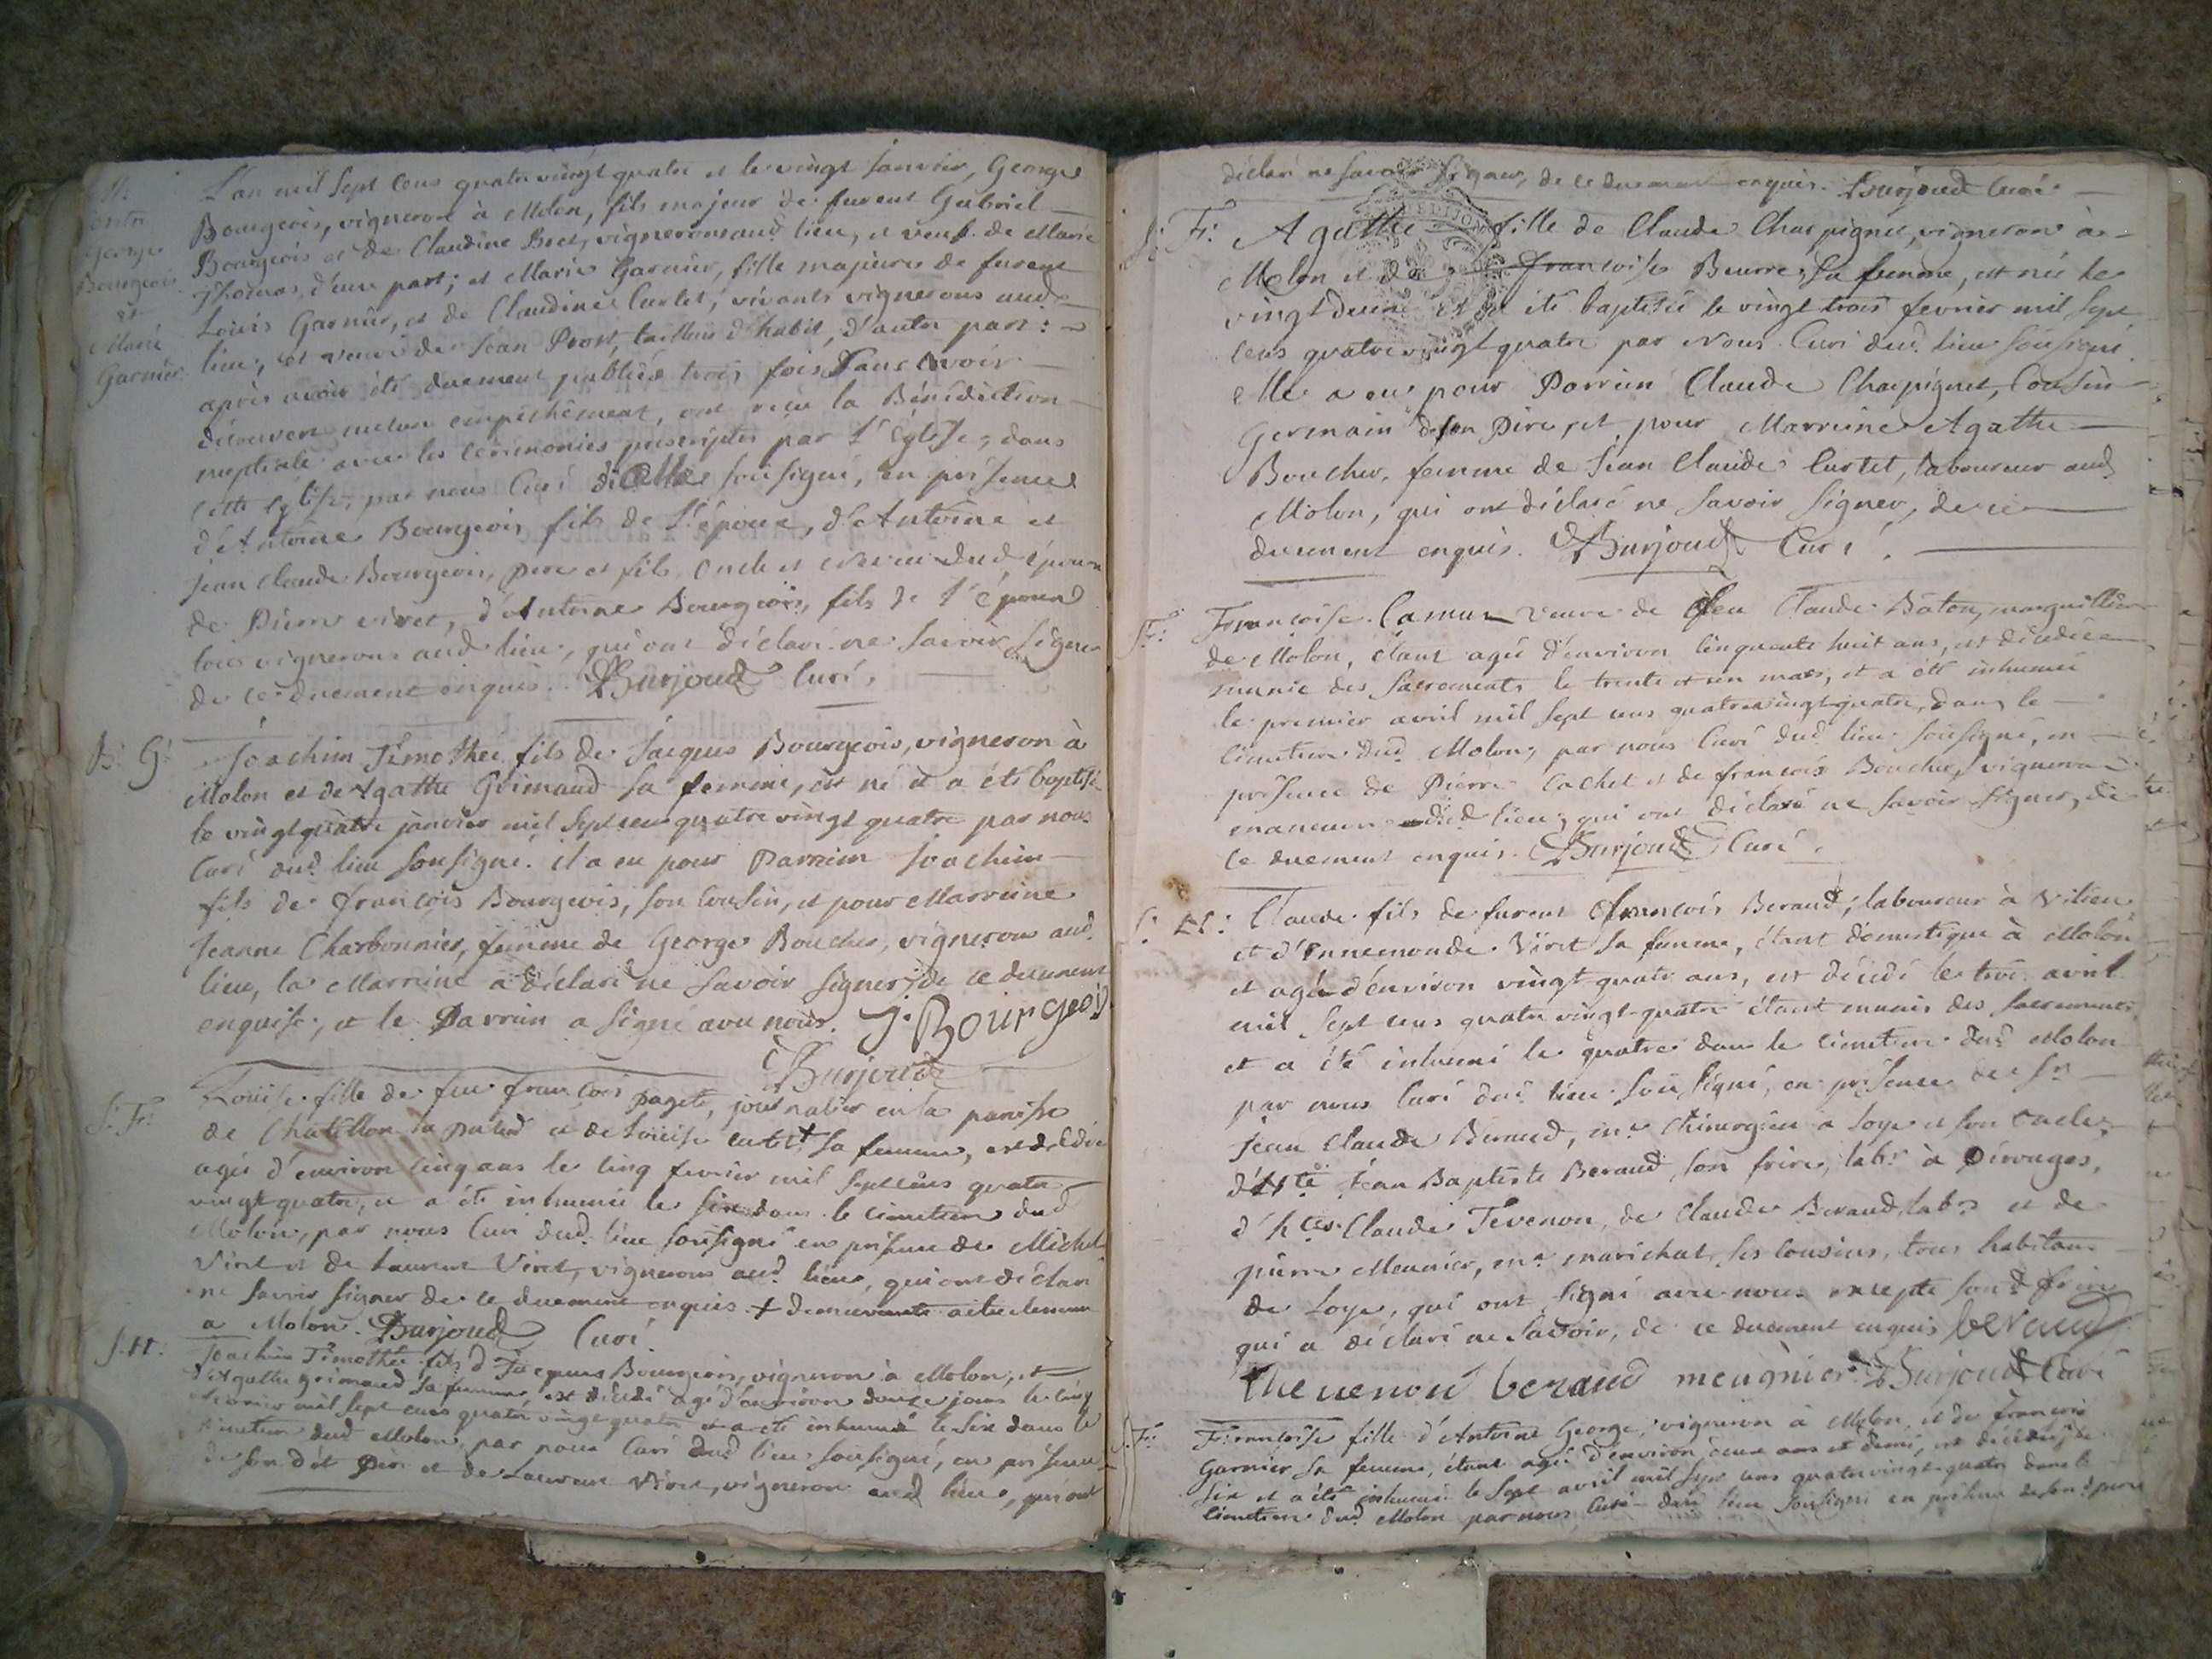 L'an mil sept cens quatre vingt quatre et le vingt janvier, George
Bourgeois, vigneron à Molon, fils majeur de furent Gabriel
Bourgeois et de Claudine Bret, vignerons aud. lieu, et veuf de Marie
Thomas, d'une part; et Marie Garnier, fille majeure de furent
Louis Garnier, et de Claudine Curlet, vivants vignerons aud.
lieu, et veuve de Jean Prost, tailleur d'habit, d'autre part:
après avoir été duement publiés trois fois sans avoir
découvert aucun empêchement, ont reçu la Bénédiction
nuptiale avec les cérémonies prescriptes par l'Eglise, dans
cette eglise, par nous Curé d'icelle soussigné, en présence
d'Antoine Bourgeois fils de l'époux, d'Antoine et
Jean Claude Bourgeois, pere et fils, oncle et neveu dud. époux
de Pierre Viret, d'Antoine Bourgeois, fils de l'époux
tous vignerons aud. lieu, qui ont déclaré ne savoir signer
de ce duement enquis. Burjoud Curé.
M.
entre
George
Bourgeois
et
Marie
Garnier
B. G. Joachim Timothée fils de Jacques Bourgeois, vigneron à
Molon et de Agathe Grimaud sa femme, est né et a été baptisé
le vingt quatre janvier mil sept cens quatre vingt quatre par nous
Curé dud. lieu soussigné. il a eu pour Parrain Joachim
fils de françois Bourgeois, son Cousin, et pour Marreine
Jeanne Charbonnier, femme de George Boucher, vigneron aud.
lieu, la Marreine a déclaré ne savoir signer de ce duement
enquise, et le Parrain a signé avec nous. J. Bourgeois
Burjoud
S. F. Louise fille de feu françois Paget, journalier en la paroisse
de Chatillon la palud et de Louise Curtet + sa femme, est décédée
agée d'environ cinq ans le cinq fevrier mil sept cens quatre
vingt quatre, et a été inhumée le six dans le cimetiere dud.
Molon, par nous Curé dud. lieu soussigné en présence de Michel
Viret et de Laurent Viret, vignerons aud. lieu, qui ont déclaré
ne savoir signer de ce duement enquis. + demeurante actuellement
a Molon. Burjoud Curé.
S. H. Joachim Timothée fils d Jacques Bourgeois, vigneron à Molon, et
d'Agathe Grimaud sa femme, est décédé agé d'environ douze jours le cinq
fevrier mil sept cens quatre vingt quatre et a été inhumé le six dans le
cimetiere dud Molon, par nous Curé dud lieu soussigné, en présence
de son dit Pere et de Laurent Viret, vigneron aud lieu, qui ont
déclaré ne savoir signer, de ce duement enquis. Burjoud Curé
F. Agathe fille de Claude Charpignet, vigneron à
Molon et de françoise Beurre, sa femme, est née le
vingt deux et a été baptisée le vingt trois fevrier mil sept
cens quatre vingt quatre par Nous Curé dud. lieu soussigné.
elle a eu pour Parrein Claude Charpignet, Cousin
Germain de son Pere, et pour Marreine Agathe
Boucher, femme de Jean Claude Curtet, laboureur aud
Molon, qui ont déclaré ne savoir signer, de ce
duement enquis. Burjoud Curé.
F. Françoise Camus veuve de feu Claude Bâton, marguillier
de Molon, étant agée d'environ cinquante huit ans, est décédée
munie des sacrements le trente et un mars, et a été inhumée
le premier avril mil sept cens quatre vingt quatre, dans le
cimetiere dud. Molon, par nous Curé dud. lieu soussigné, en
présence de Pierre Cachet et de françois Boucher, vigneron
maneuvre dud. lieu, qui ont déclaré ne savoir signer, de
ce duement enquis. Burjoud Curé.
S. H. Claude fils de furent françois Beraud, laboureur à Vilieu
et d'Ennemonde Viret sa femme, étant domestique à Molon
et agé d'environ vingt quatre ans, est décédé le trois avril
mil sept cens quatre vingt quatre étant munis des sacrements
et a été inhumé le quatre dans le cimetiere dud. Molon
par nous Curé dud. lieu soussigné, en présence de Sr.
Jean Claude Beraud, me. Chirurgien a Loye et son oncle,
d'hte. Jean Baptiste Beraud, son frere, labr. à Pérouges,
d'htes. Claude Tevenon, de Claude Beraud, labrs. et de
pierre Meunier, me. marichal, ses cousins, tous habitans
de Loye, qui ont signé avec nous excepté son d. frere
qui a déclaré ne savoir, de ce duement enquis beraud
thevenon beraud meugnier Burjoud Curé
S. F. Françoise fille d'Antoine George, vigneron à Molon, et de françoise
Garnier sa femme, étant agée d'environ deux ans et demi, est décédée le
six et a été inhumée le sept avril mil sept cens quatre vingt quatre dans le
cimetiere dud. Molon par nous Curé dud. lieu soussigné en présence de son d. pere